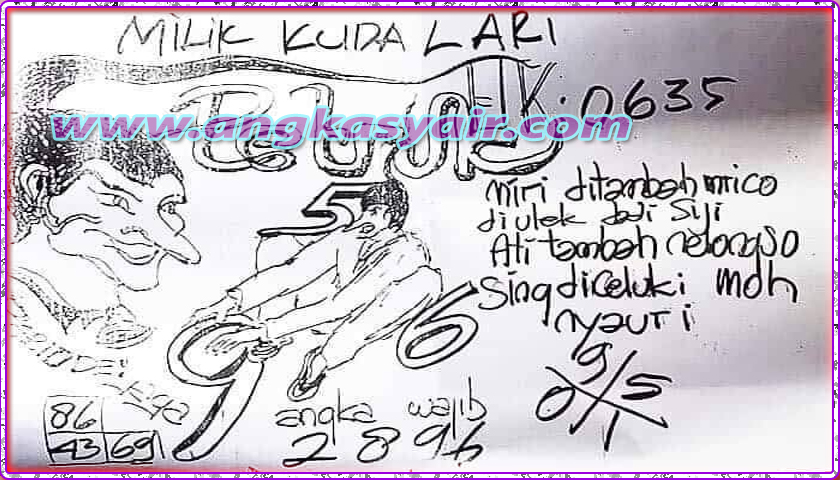 MILIK KUDA LARI
HK. 0635
www.angkasyair.com
5
miri ditambah mrico
diulek dadi siji
Ati tambah nelongso
Sing diceluki moh
nyauri
6
9
9
0 5
1
86
43 69
angka wajib
2 8 9 6